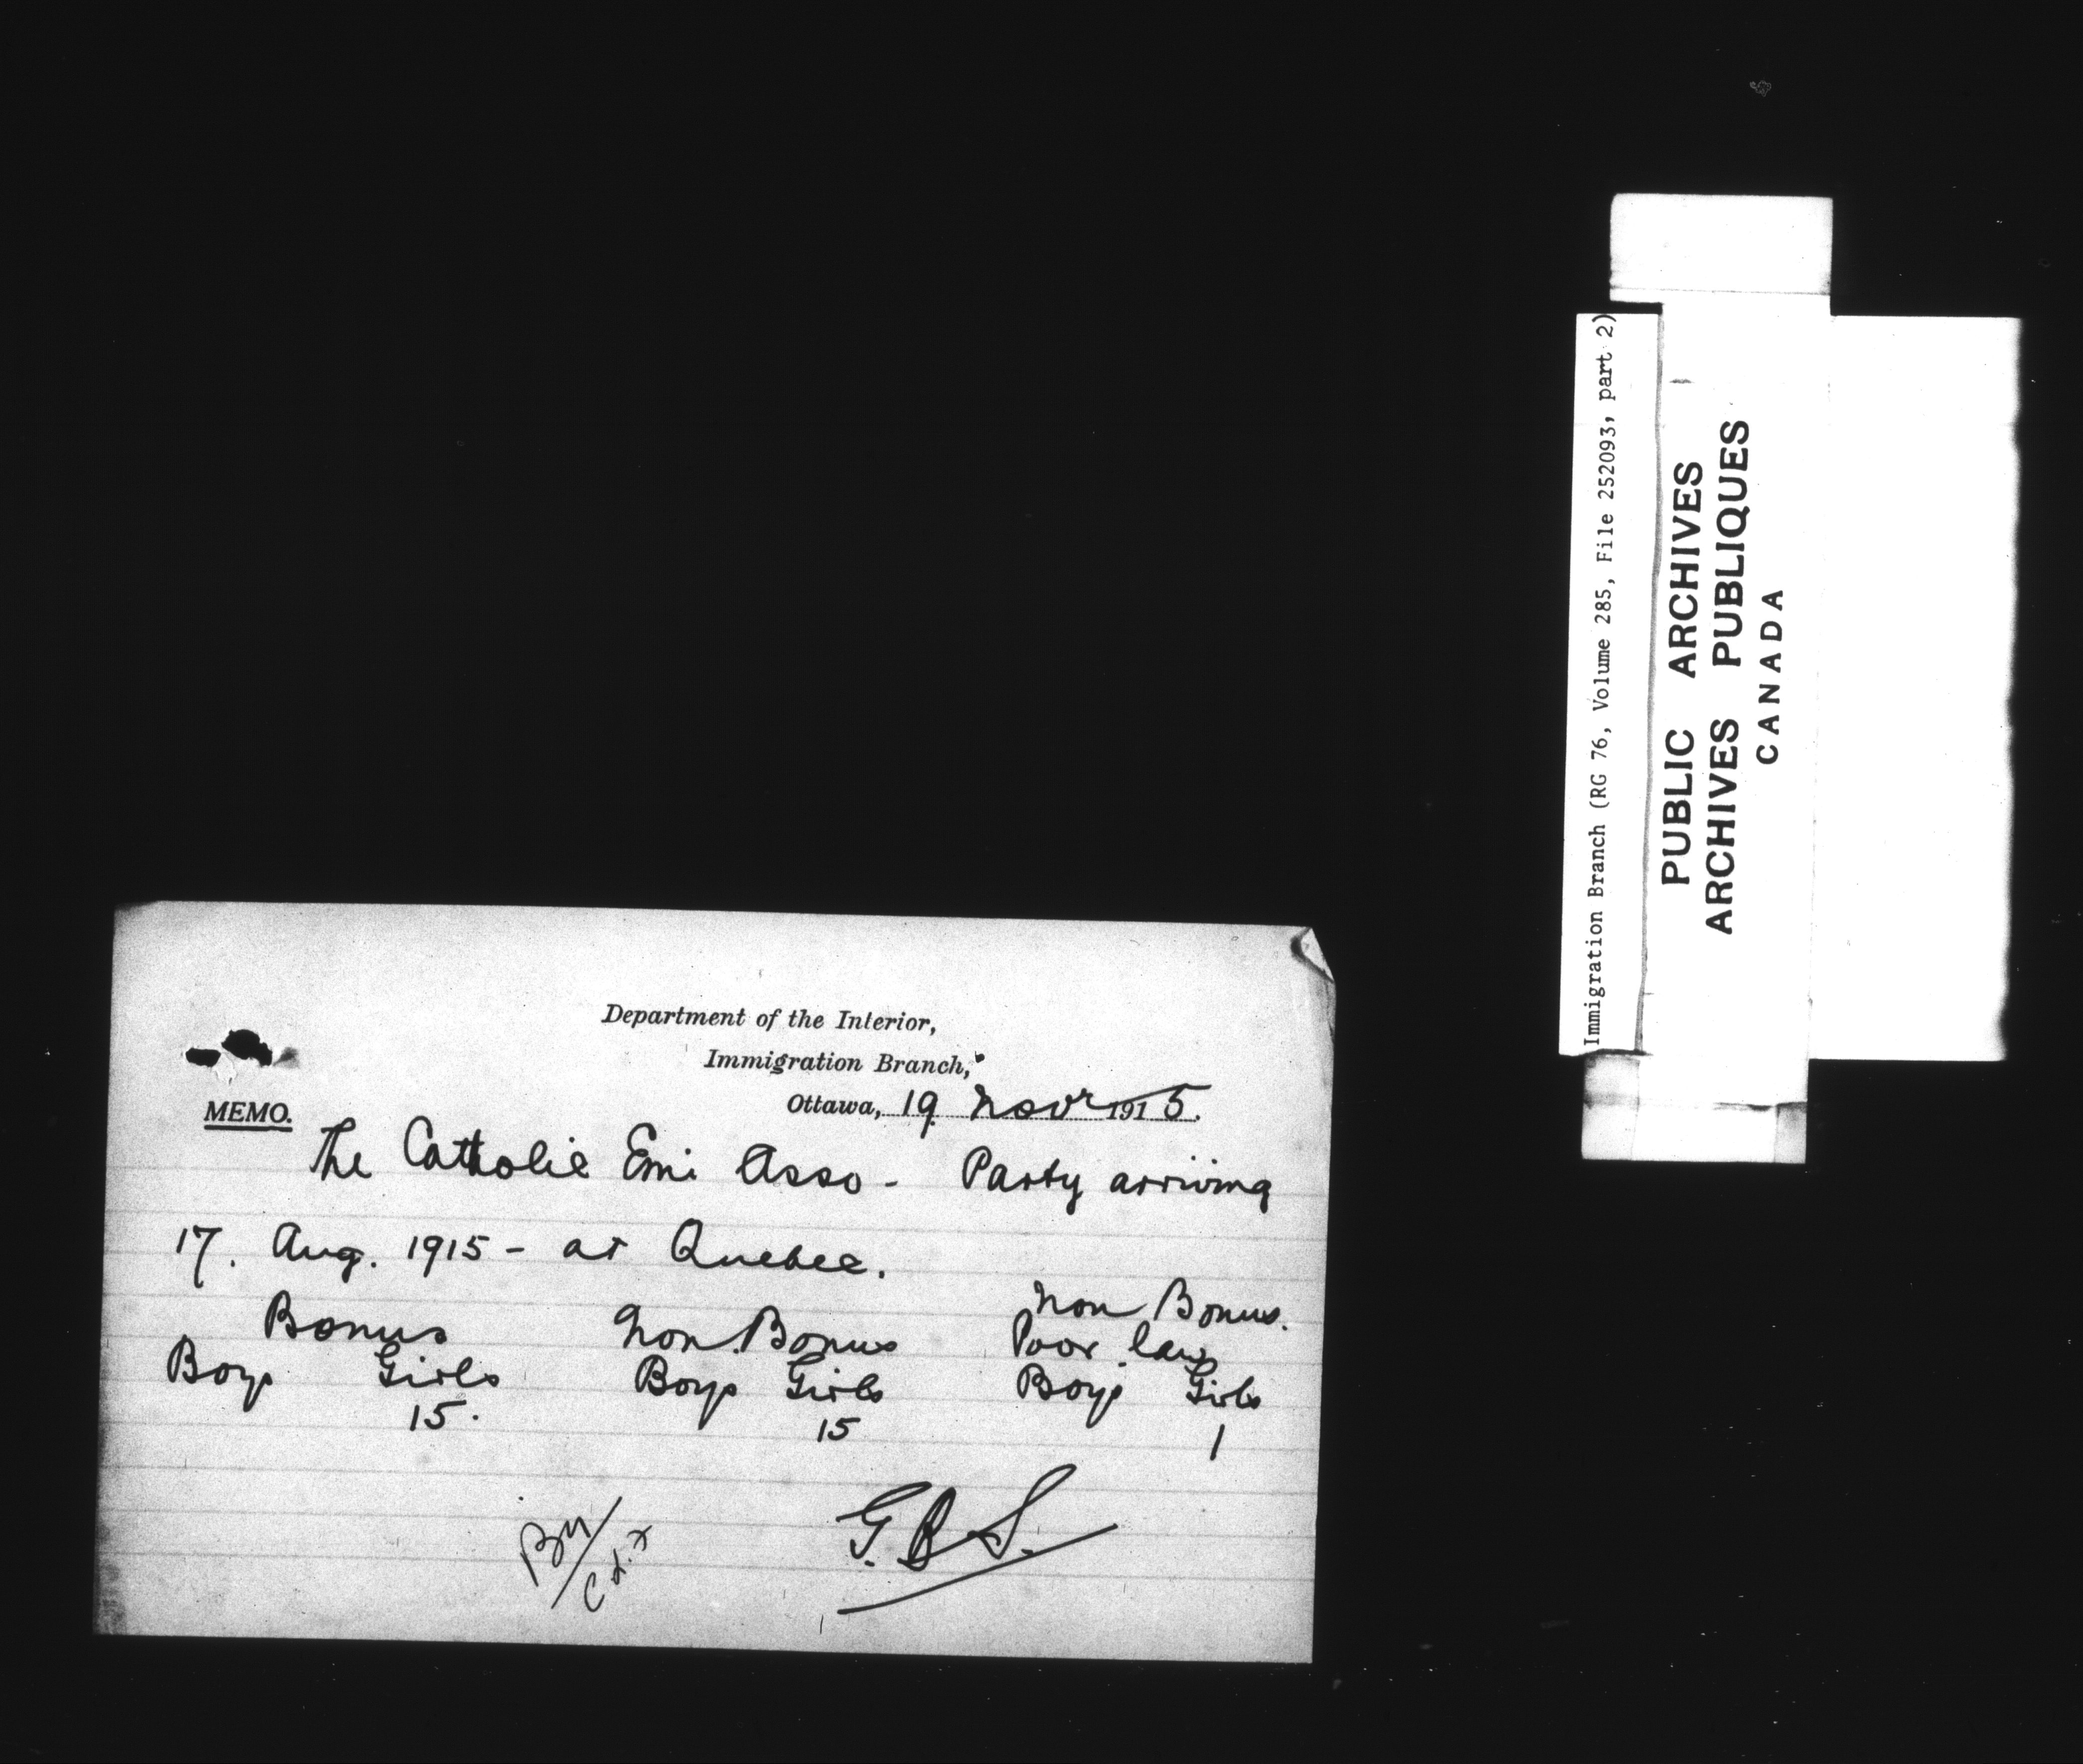 Department of the Interior,
Immigration Branch,
MEMO. Ottawa, 19 Novr 1915.
The Catholic Emi Asso - Party arriving
17. Aug. 1915 - at Quebec.
Bonus Non. Bonus Non Bonus.
Poor law
Boys Girls Boys Girls Boys Girls
15. 15 1
G.B.S.
Immigration Branch (RG 76, Volume 285, File 252093, part 2)
PUBLIC ARCHIVES
ARCHIVES PUBLIQUES
CANADA